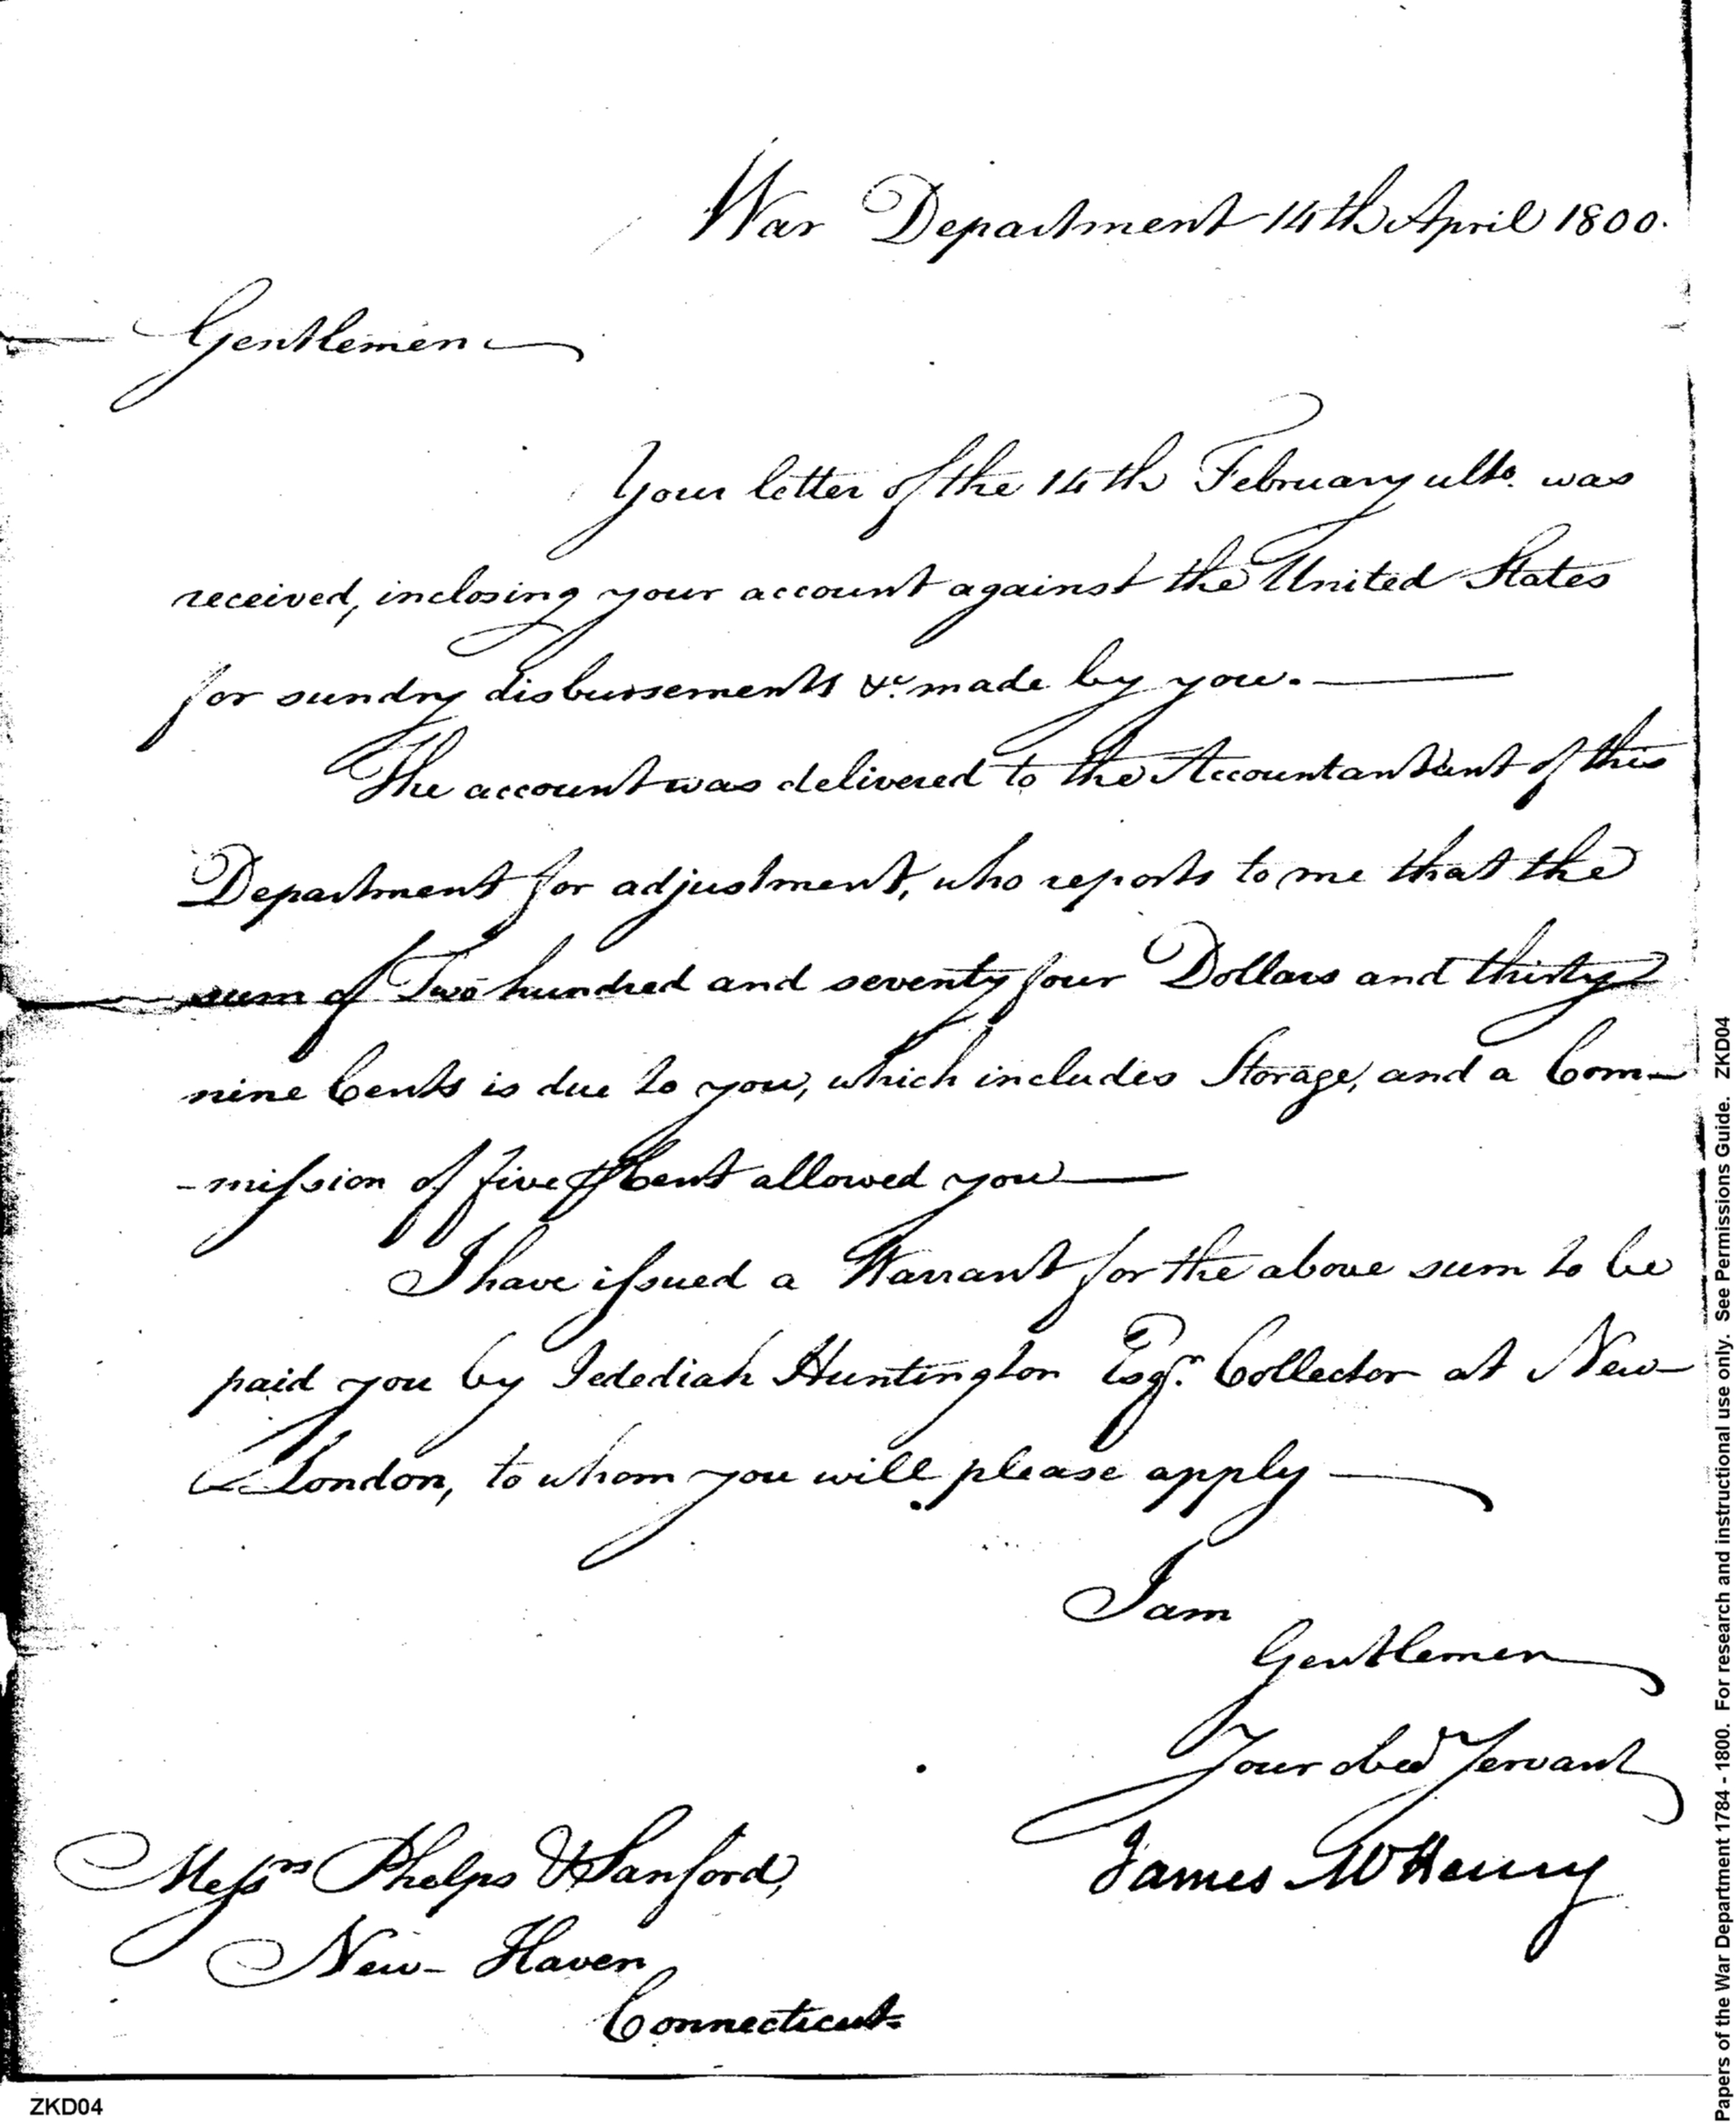 War Department 14th April 1800.
Gentlemen
Your letter of the 14th February ulto. was
received, inclosing your account against the United States
for sundry disbursements &c. made by you.
The account was delivered to the Accountantant of this
Department for adjustment, who reports to me that the
sum of Two hundred and seventy four Dollars and thirty
nine Cents is due to you, which includes Storage, and a Com-
-mission of five ⅌ Cent allowed you
I have issued a Warrant for the above sum to be
paid you by Jedediah Huntington Esqr. Collector at New-
London, to whom you will please apply
I am
Gentlemen
Your obedt Servant
James McHenry
Messrs Phelps & Sanford,
New-Haven
Connecticut.
ZKD04
Papers of the War Department 1784 - 1800. For research and instructional use only. See Permissions Guide. ZKD04